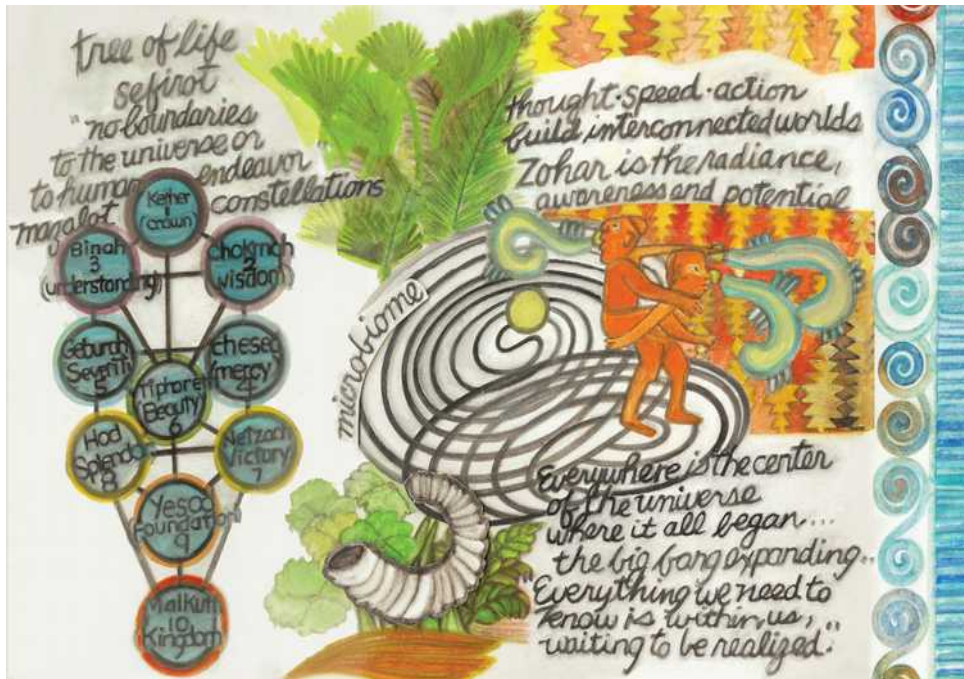 tree of life
sefirot
"no boundaries
to the universe or
to human endeavor"
mazalot constellations
Kether
1
(crown)
Binah
3
(understanding)
cholqmah
2
wisdom
Geburah
Severith
5
chesed
(mercy
4
Tiphore
Beauty
6
Hod
Splendor
8
Netzach
Victory
7
Yesod
Foundation)
9
Malkuth
10
Kingdom
microbiome
thought·speed·action
build interconnected worlds
Zohar is the radiance,
awareness and potential
Everywhere is the center
of the universe
where it all began...
the big bang expanding..
"Everything we need to
know is within us,
waiting to be realized."